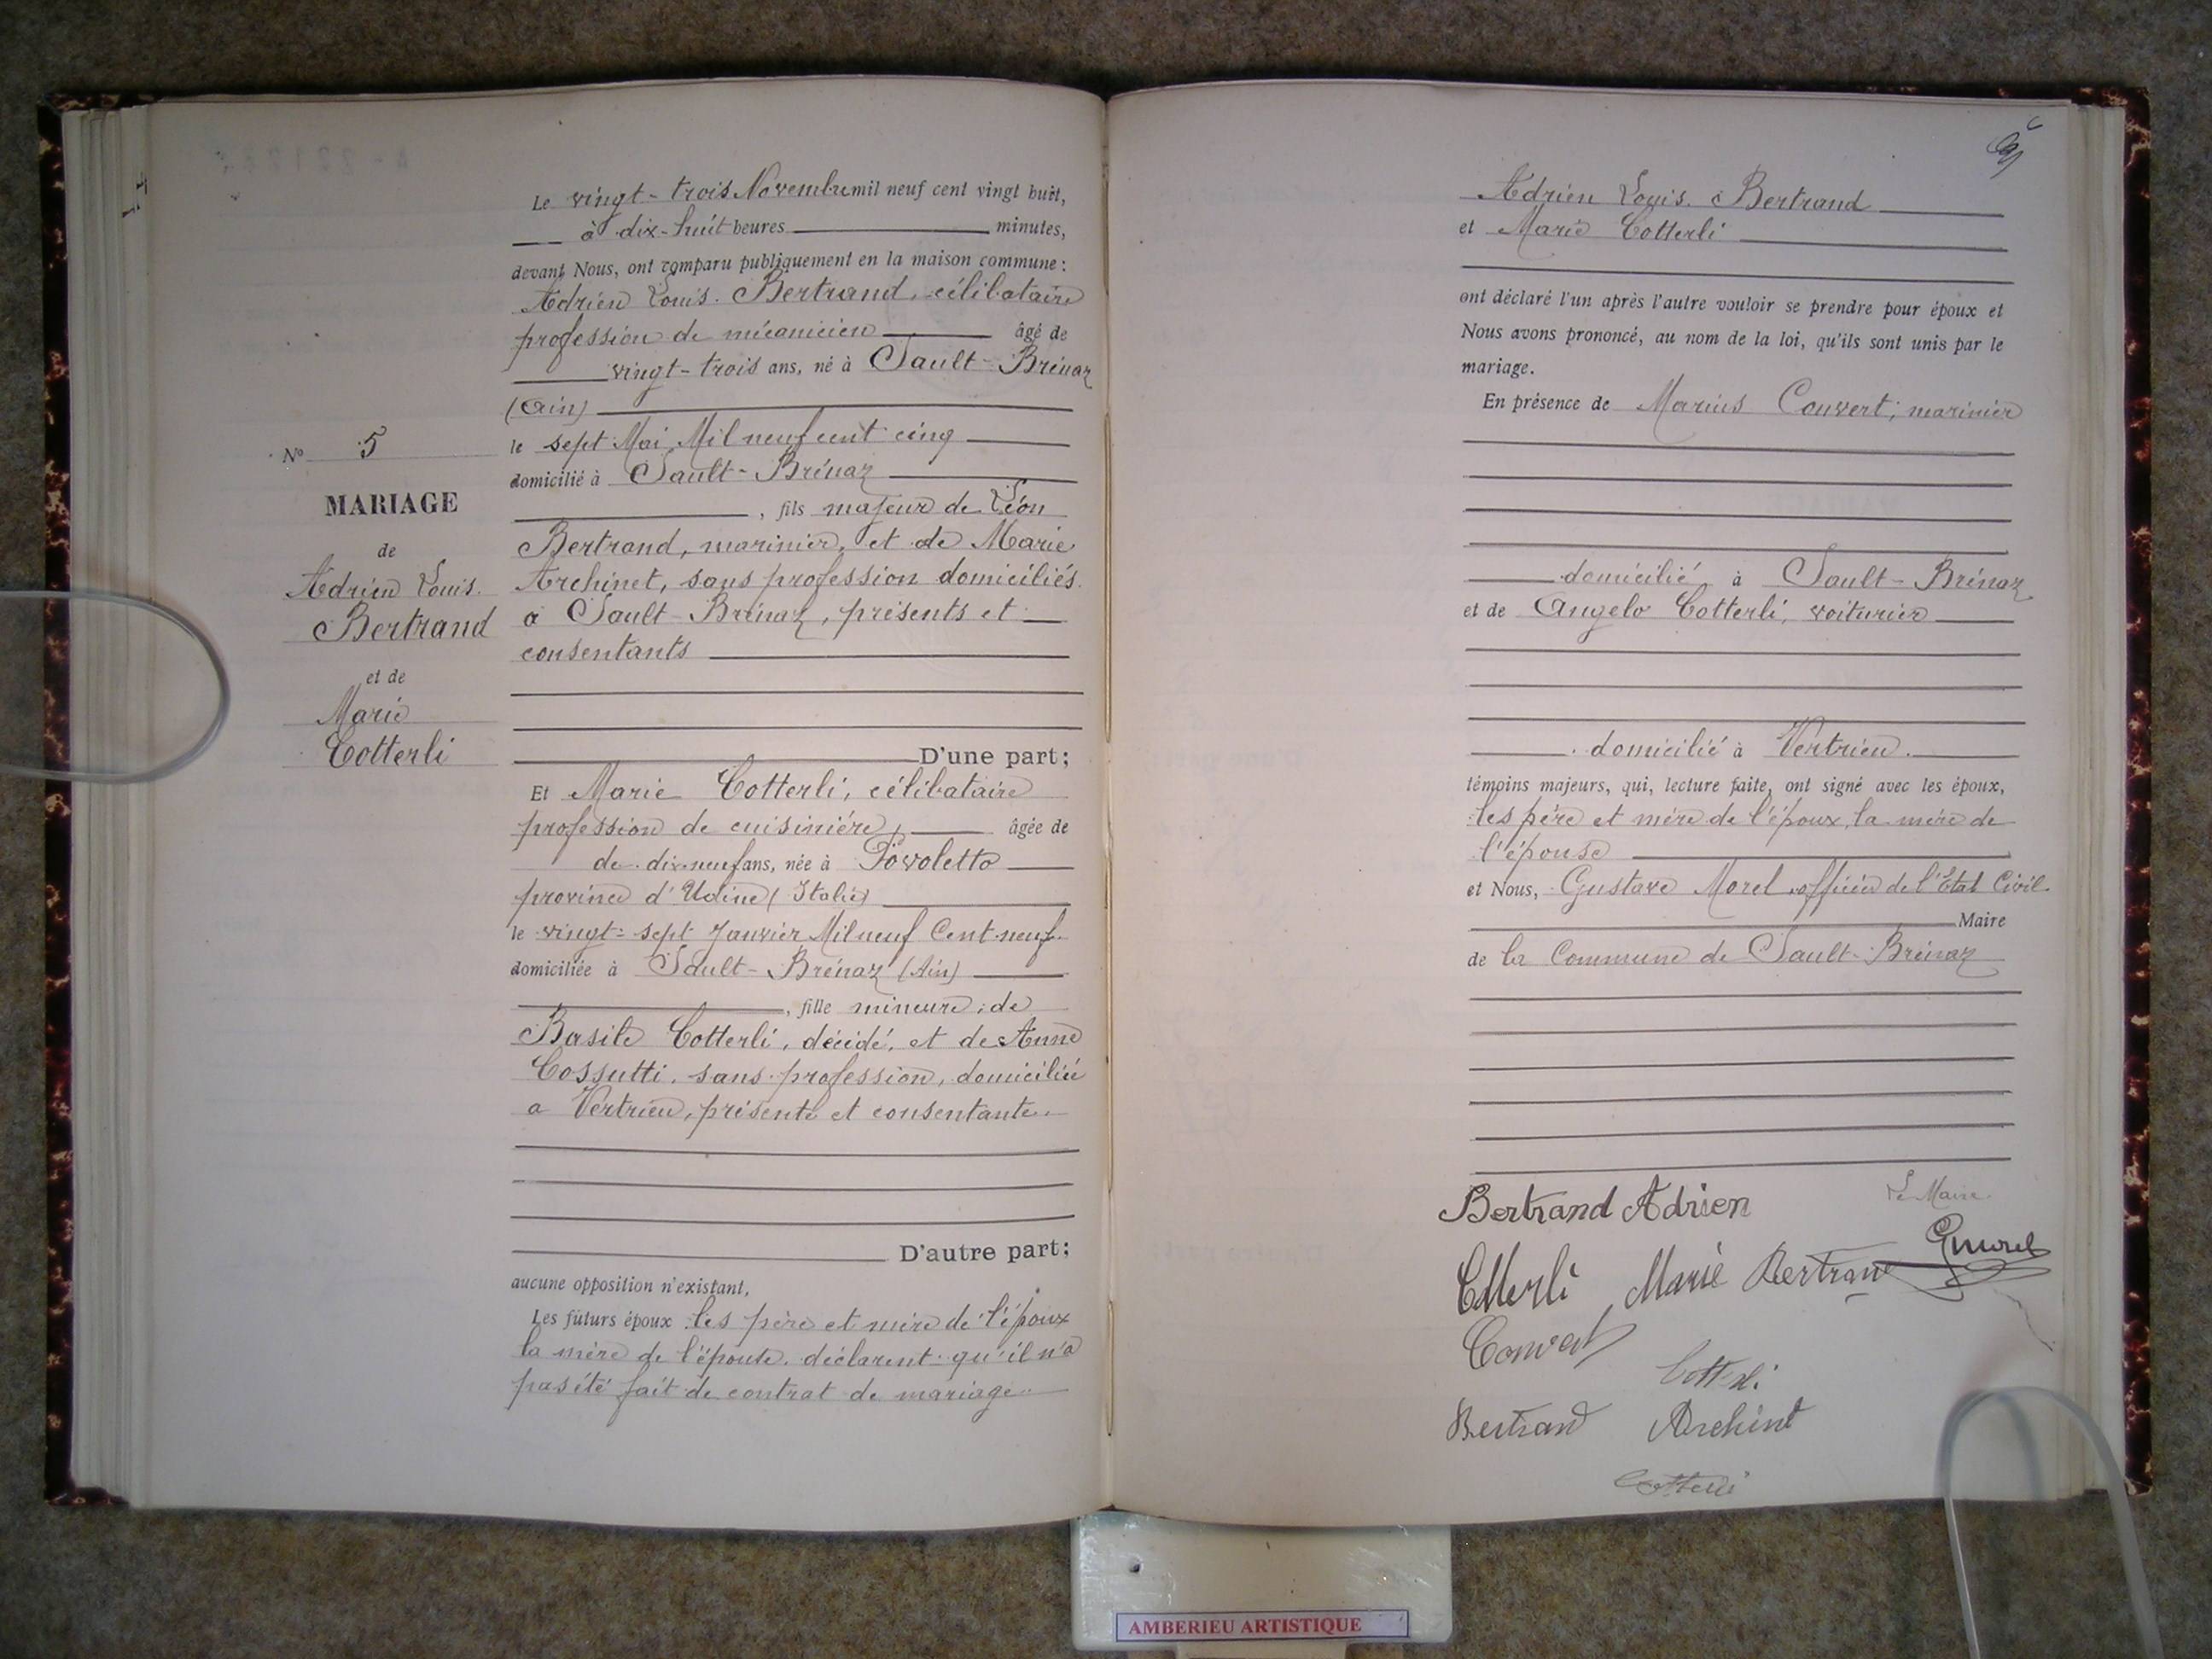 N° 5
MARIAGE
de
Adrien Louis
Bertrand
et de
Marie
Cotterli
Le vingt-trois Novembre mil neuf cent vingt huit,
à dix-huit heures minutes,
devant Nous, ont comparu publiquement en la maison commune :
Adrien Louis Bertrand, célibataire
profession de mécanicien âgé de
vingt-trois ans, né à Sault-Brénaz
(Ain)
le sept Mai Mil neuf cent cinq
domicilié à Sault-Brénaz
, fils majeur de Léon
Bertrand, marinier, et de Marie
Archinet, sans profession domiciliés
à Sault-Brénaz, présents et
consentants
D'une part;
Et Marie Cotterli, célibataire
profession de cuisinière, âgée de
de dix-neuf ans, née à Povoletto
province d'Udine (Italie)
le vingt-sept Janvier Mil neuf Cent neuf
domiciliée à Sault-Brénaz (Ain)
, fille mineure de
Basile Cotterli, décédé, et de Anne
Cossutti, sans profession, domiciliée
a Vertrieu, présente et consentante
D'autre part;
aucune opposition n'existant,
Les futurs époux les père et mère de l'époux
la mère de l'épouse, déclarent qu'il n'a
pas été fait de contrat de mariage
Adrien Louis Bertrand
et Marie Cotterli
ont déclaré l'un après l'autre vouloir se prendre pour époux et
Nous avons prononcé, au nom de la loi, qu'ils sont unis par le
mariage.
En présence de Marius Convert, marinier
domicilié à Sault-Brénaz
et de Angelo Cotterli, voiturier
domicilié à Vertrieu.
témoins majeurs, qui, lecture faite, ont signé avec les époux,
les père et mère de l'époux, la mère de
l'épouse
et Nous, Gustave Morel, officier de l'Etat Civil
Maire
de la Commune de Sault-Brénaz
Bertrand Adrien
Le Maire
GMorel
Cotterli Marie Bertrand
Convert
Cotterli
Bertrand Archinet
Cotterli
AMBERIEU ARTISTIQUE